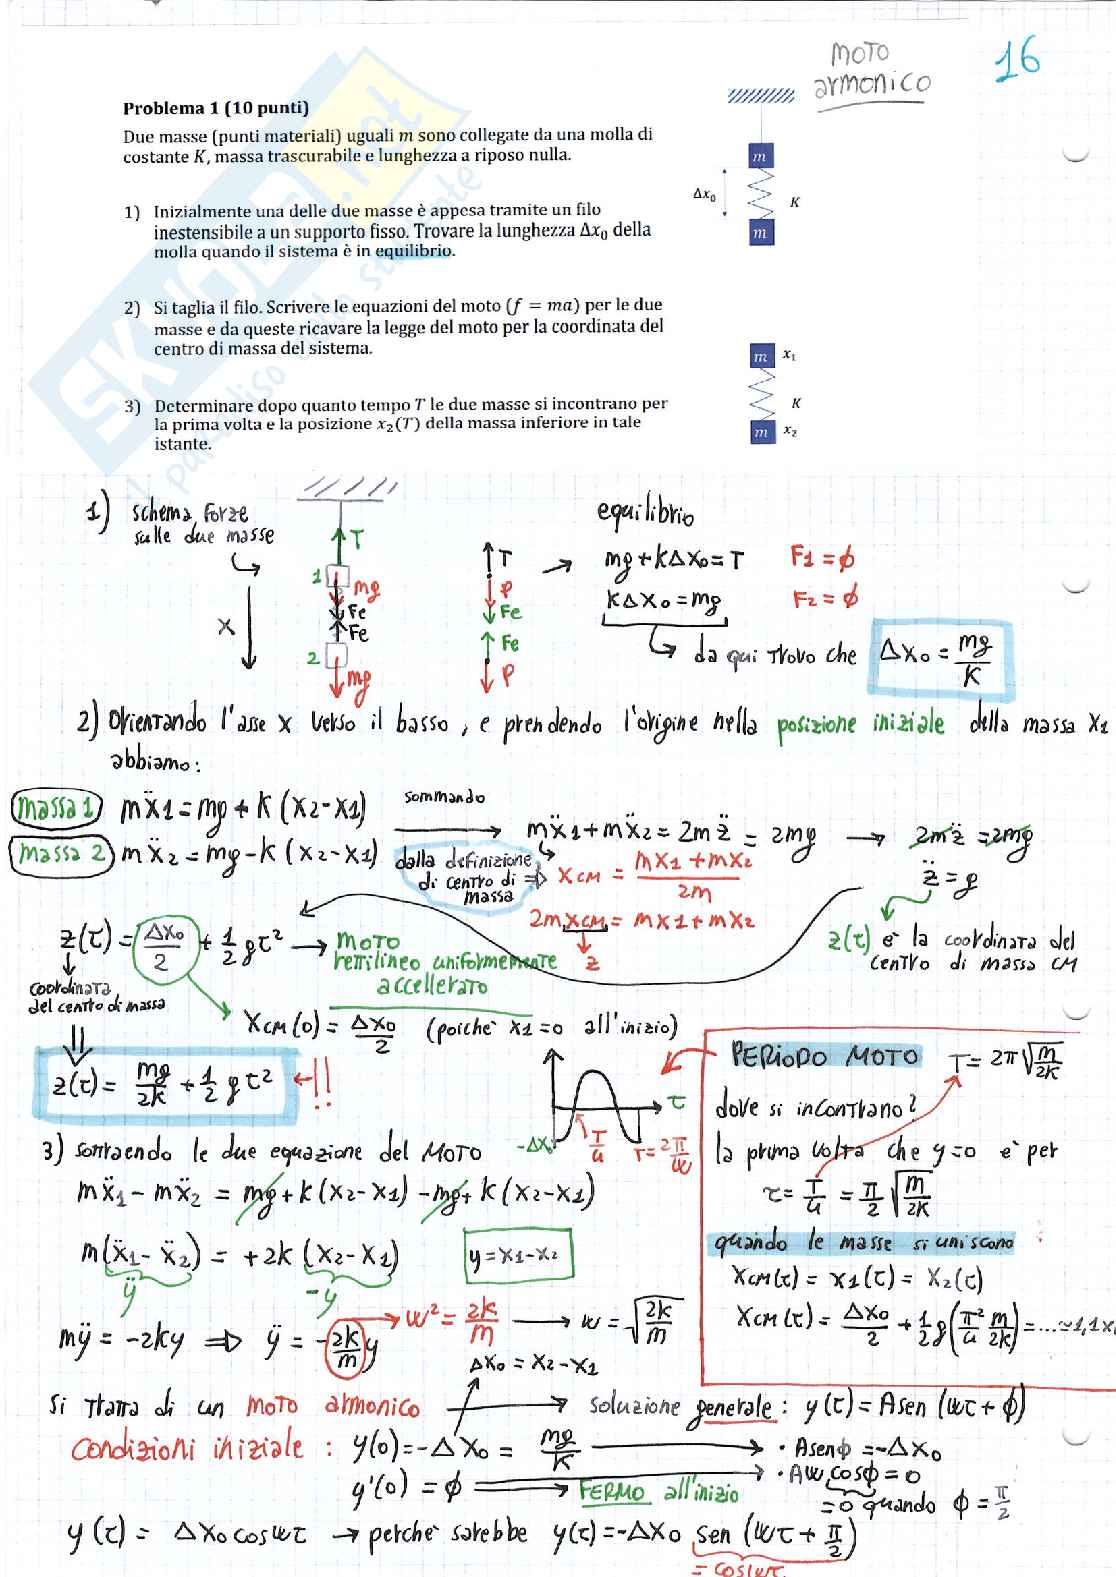 MOTO
armonico
16
Problema 1 (10 punti)
Due masse (punti materiali) uguali m sono collegate da una molla di
costante K, massa trascurabile e lunghezza a riposo nulla.
1) Inizialmente una delle due masse è appesa tramite un filo
inestensibile a un supporto fisso. Trovare la lunghezza Δx₀ della
molla quando il sistema è in equilibrio.
2) Si taglia il filo. Scrivere le equazioni del moto (f = ma) per le due
masse e da queste ricavare la legge del moto per la coordinata del
centro di massa del sistema.
3) Determinare dopo quanto tempo T le due masse si incontrano per
la prima volta e la posizione x₂(T) della massa inferiore in tale
istante.
m
Δx₀
K
m
m x₁
K
m x₂
SKUOLA.net
il paradiso dello studente
1) schema forze
sulle due masse
x
T
1
mg
Fe
Fe
2
mg
T
P
Fe
Fe
P
equilibrio
mg+kΔx₀=T F1=ϕ
kΔx₀=mg F2=ϕ
da qui trovo che Δx₀ = mg/K
2) Orientando l'asse x verso il basso, e prendendo l'origine nella posizione iniziale della massa x1
abbiamo:
massa 1 mẍ1=mg+k(x2-x1)
massa 2 mẍ2=mg-k(x2-x1)
sommando
mẍ1+mẍ2=2mz̈ = 2mg → 2mz̈=2mg
z̈=g
dalla definizione
di centro di ⇒
massa
xCM = (mx1+mx2)/2m
2mxCM = mx1+mx2
z
z(t) è la coordinata del
centro di massa CM
z(t) = Δx₀/2 + 1/2 gt² → MOTO
rettilineo uniformemente
accellerato
coordinata
del centro di massa
xCM(0) = Δx₀/2 (poichè x1=0 all'inizio)
z(t) = mg/2k + 1/2 gt² ←!!
-Δx₀
T/4
T=2π/w
t
PERIODO MOTO T=2π√(m/2k)
dove si incontrano?
la prima volta che y=0 è per
t = T/4 = π/2 √(m/2k)
quando le masse si uniscono:
xCM(t) = x1(t) = x2(t)
xCM(t) = Δx₀/2 + 1/2 g(π²/4 m/2k)=...~1,1x
3) sottraendo le due equazione del MOTO
mẍ1-mẍ2 = mg+k(x2-x1)-mg+k(x2-x1)
m(ẍ1-ẍ2) = +2k(x2-x1)
ÿ
-y
y=x1-x2
mÿ = -2ky ⇒ ÿ = -2k/m y
w² = 2k/m → w = √(2k/m)
Δx₀ = x2-x1
si tratta di un moto armonico → soluzione generale: y(t)=Asen(wt+ϕ)
Condizioni iniziale: y(0)=-Δx₀ = mg/K → · Asenϕ=-Δx₀
y'(0) = ϕ → FERMO all'inizio
· Aw cosϕ=0
=0 quando ϕ=π/2
y(t) = Δx₀coswt → perchè sarebbe y(t)=-Δx₀ sen(wt+π/2)
=coswt